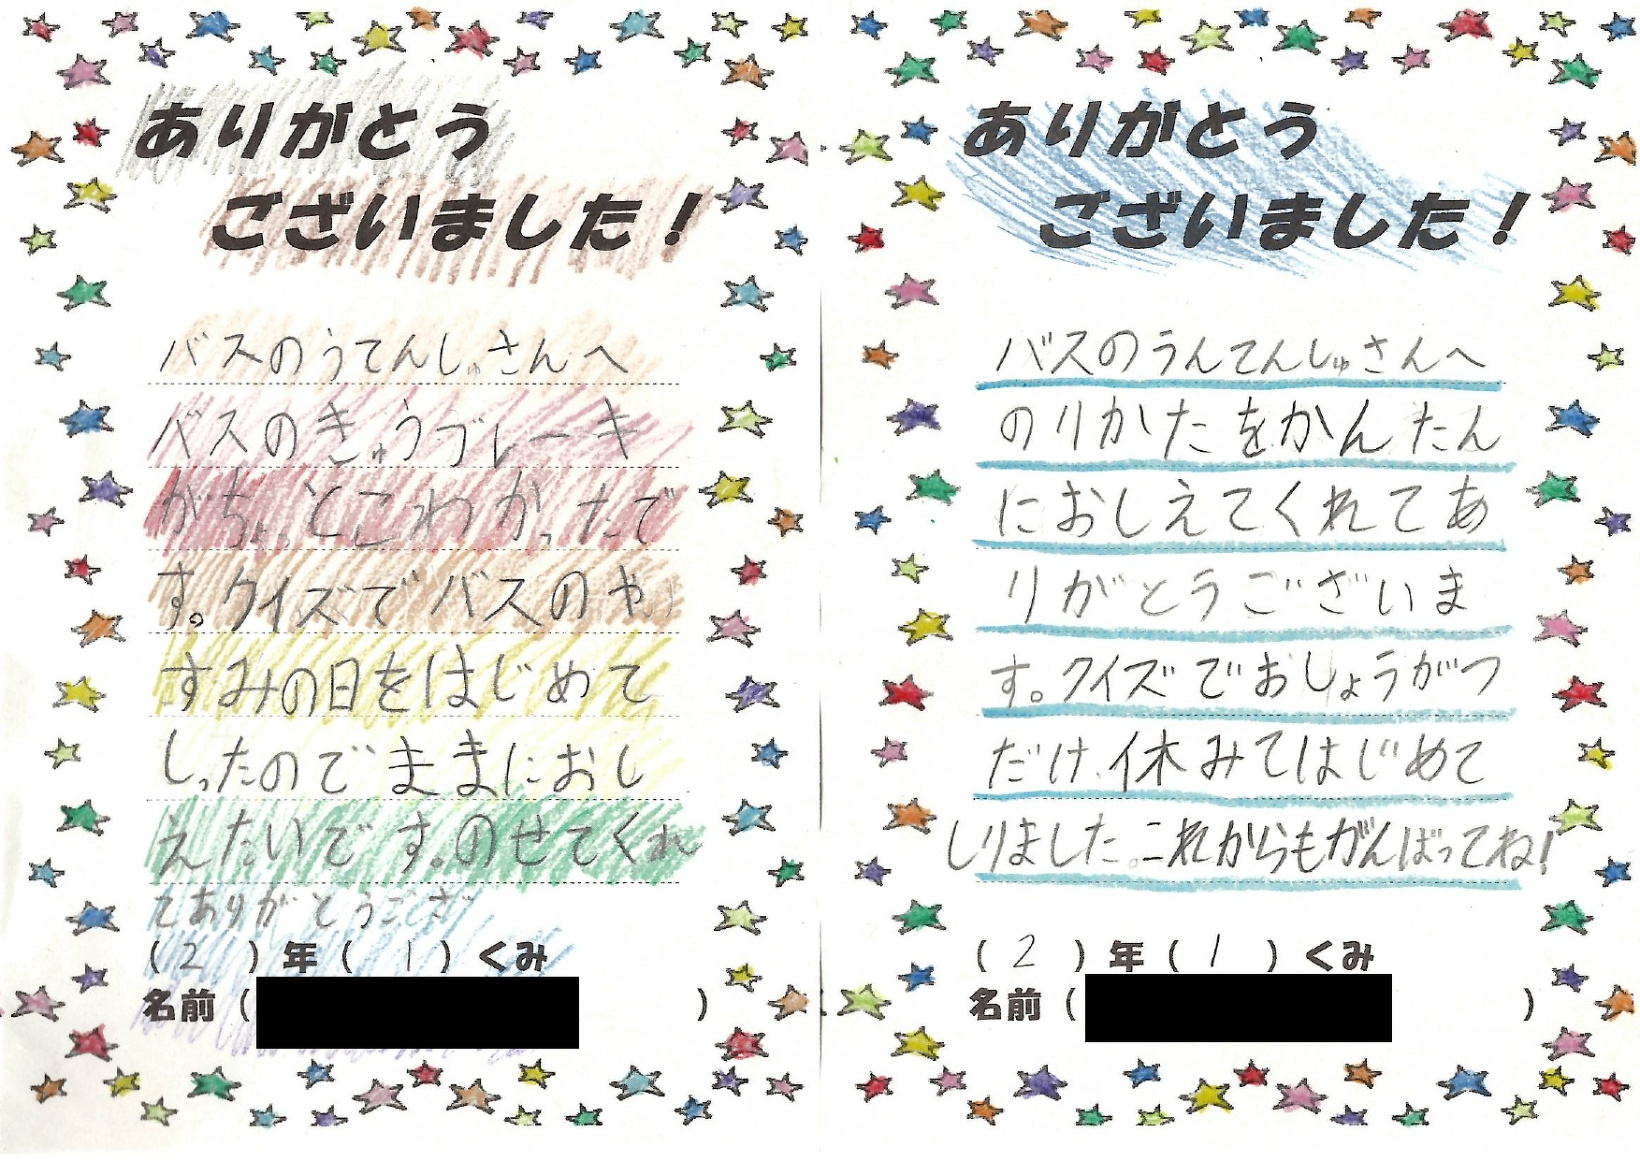 ありがとう
ございました!
バスのうてんしゅさんへ
バスのきゅうブレーキ
がちょっとこわかったで
す。クイズでバスのや
すみの日をはじめて
しったのでままにおし
えたいです。のせてくれ
てありがとうござ
(2)年(1)くみ
名前( )
ありがとう
ございました!
バスのうんてんしゅさんへ
のりかたをかんたん
におしえてくれてあ
りがとうございま
す。クイズでおしょうがつ
だけ、休みてはじめて
しりました。これからもがんばってね!
(2)年(1)くみ
名前( )